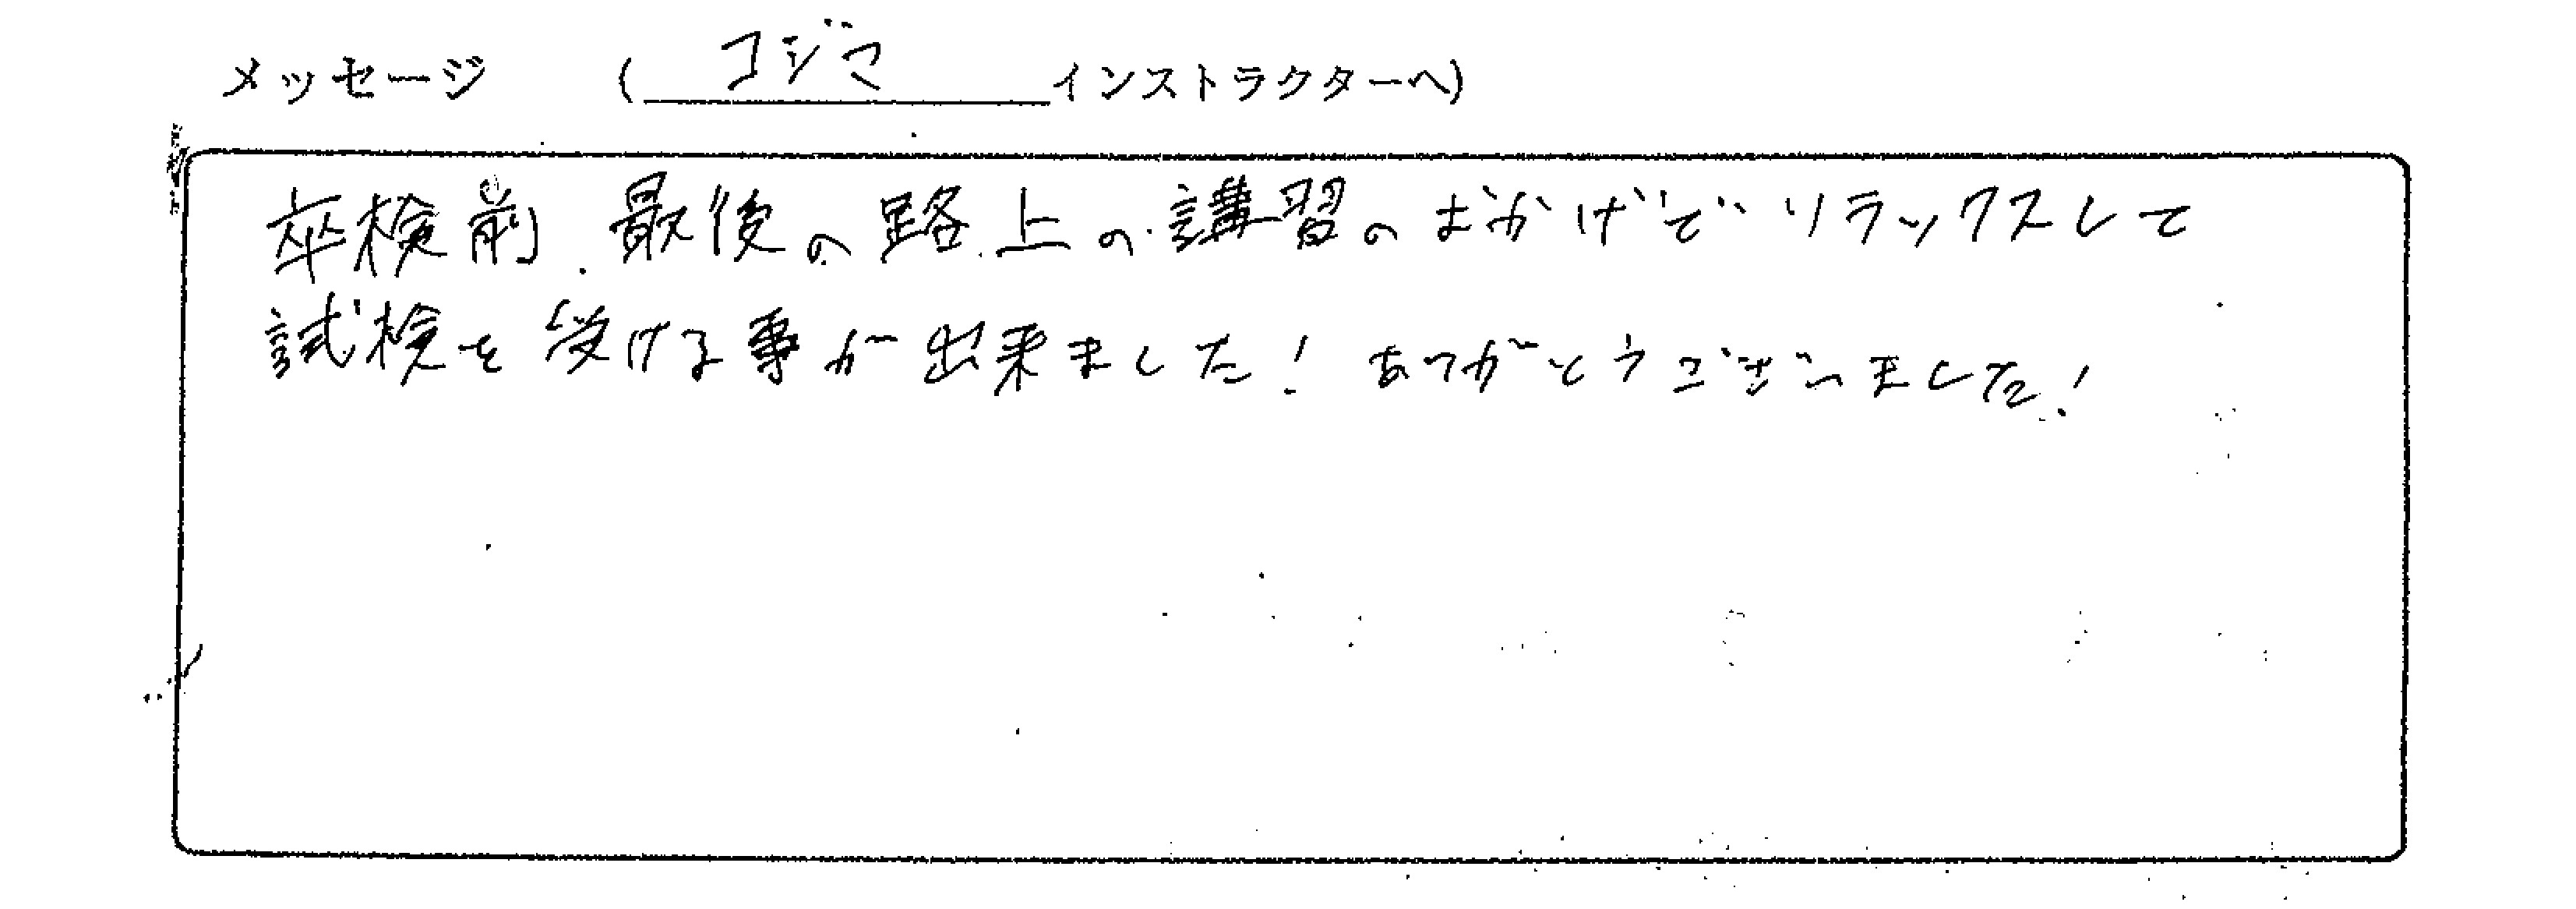 メッセージ (コジマインストラクターへ)
卒検前、最後の路上の講習のおかげでリラックスして
試検を受ける事が出来ました！ありがとうございました！